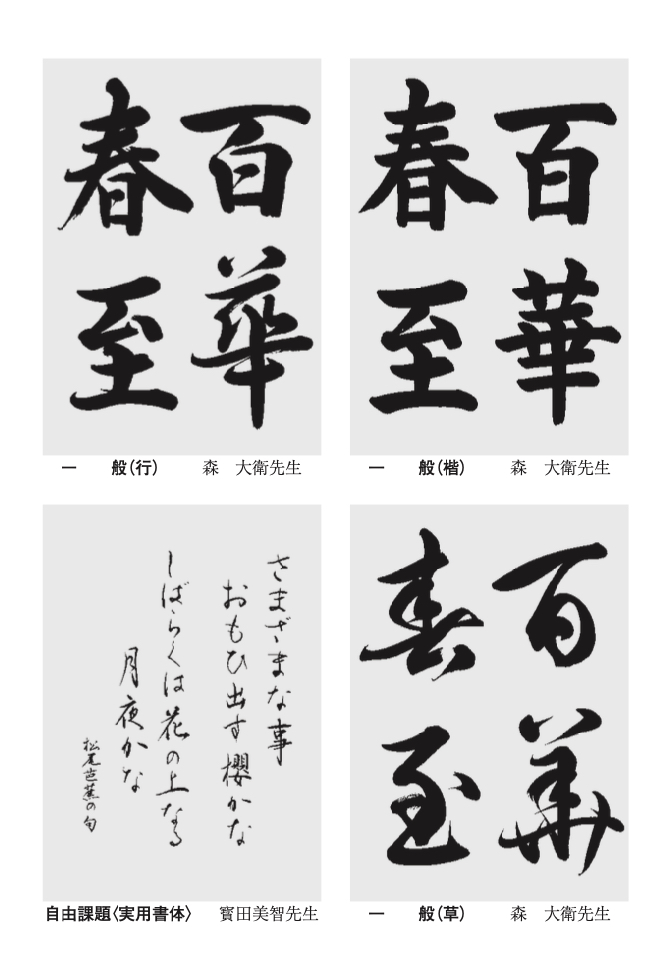 百華
春至
一　般（楷）　森　大衛先生
百華
春至
一　般（行）　森　大衛先生
百華
春至
一　般（草）　森　大衛先生
さまざまな事
おもひ出す櫻かな
しばらくは花の上なる
月夜かな
松尾芭蕉の句
自由課題〈実用書体〉　寳田美智先生